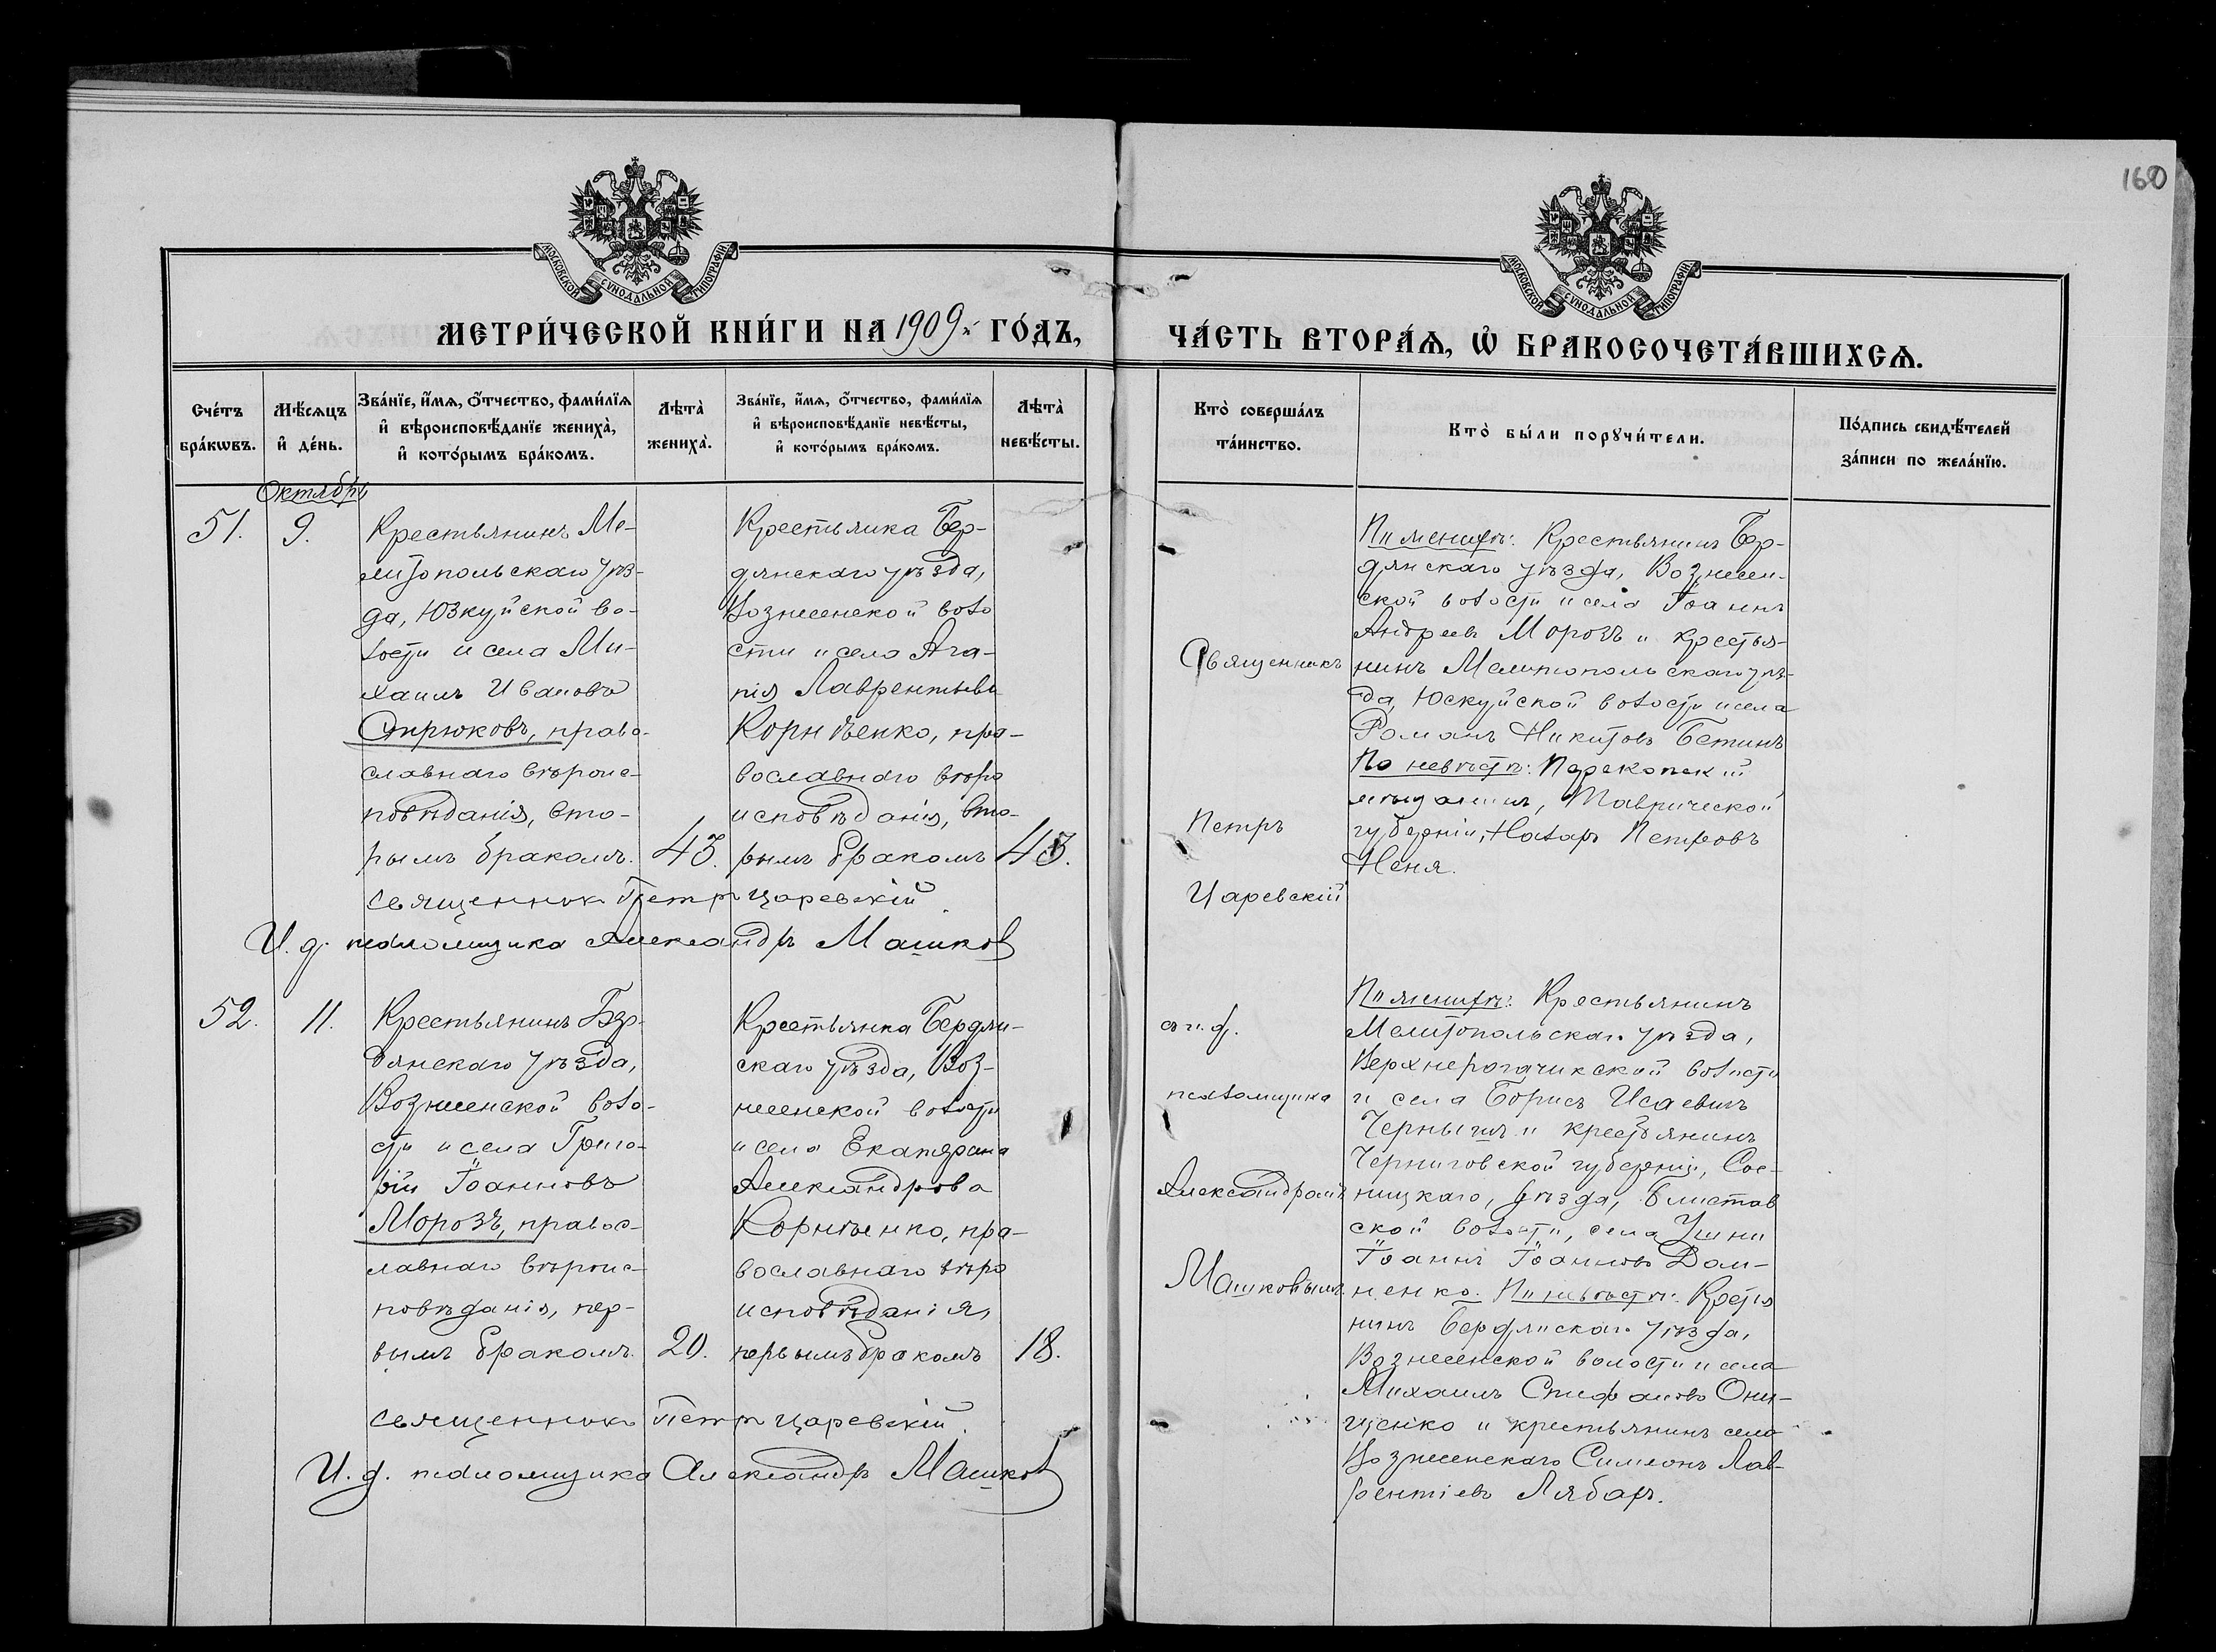 160
МОСКОВСКОЙ СѴНОДАЛЬНОЙ ТИПОГРАФІИ
МОСКОВСКОЙ СѴНОДАЛЬНОЙ ТИПОГРАФІИ
МЕТРИ́ЧЕСКОЙ КНИ́ГИ НА 1909й ГО́ДЪ,
ЧА́СТЬ ВТОРА́Ѧ, Ѽ БРАКОСОЧЕТА́ВШИХСѦ.
Сче́тъ
бра́кѡвъ.
Мѣ́сѧцъ
и҆ де́нь.
Зва́нїе, и҆́мѧ, ѻ҆́тчество, фами́лїѧ
и҆ вѣроисповѣ́данїе жениха̀,
и҆ кото́рымъ бра́комъ.
Лѣта̀
жениха̀.
Зва́нїе, и҆́мѧ, ѻ҆́тчество, фами́лїѧ
и҆ вѣроисповѣ́данїе невѣ́сты,
и҆ кото́рымъ бра́комъ.
Лѣта̀
невѣ́сты.
Кто̀ соверша́лъ
та́инство.
Кто̀ бы́ли порꙋчи́тели.
По́дпись свидѣ́телей
за́писи по жела́нїю.
Октябрь
51.
9.
Крестьянинъ Ме-
литопольскаго уѣз-
да, Юзкуйской во-
лости и села Ми-
хаилъ Ивановъ
Стирюковъ, право-
славнаго вѣроис-
повѣданія, вто-
рымъ бракомъ.
43.
Крестьянка Бер-
дянскаго уѣзда,
Вознесенской воло
сти и села Ага-
пія Лаврентьева
Корнѣенко, пра-
вославнаго вѣро
исповѣданія, вто-
рымъ бракомъ
43.
Священникъ Петръ Царевскій.
И. д. псаломщика Александръ Машков
Священникъ
Петръ
Царевскій
По женихѣ: Крестьянинъ Бер-
дянскаго уѣзда, Вознесен-
ской волости и села Іоаннъ
Андреевъ Морозъ и крестья-
нинъ Мелитопольскаго уѣз-
да, Юскуйской волости и села
Романъ Никитовъ Бетинъ
По невѣстѣ: Перекопскій
мѣщанинъ, Таврической
губерніи, Назаръ Петровъ
Неня.
52.
11.
Крестьянинъ Бер-
дянскаго уѣзда,
Вознесенской воло-
сти и села Григо-
рій Іоанновъ
Морозъ, правос-
лавнаго вѣроис-
повѣданія, пер-
вымъ бракомъ.
20.
Крестьянка Бердян-
скаго уѣзда, Воз-
несенской волости
и села Екатерина
Александрова
Корнѣенко, пра-
вославнаго вѣро
исповѣданія,
первымъ бракомъ
18.
Священникъ Петръ Царевскій.
И. д. псаломщика Александръ Машков
съ и. д.
псаломщика
Александромъ
Машковымъ.
По женихѣ: Крестьянинъ
Мелитопольскаго уѣзда,
Верхнерогачикской волости
и села Борисъ Исаевичъ
и крестьянинъ
Черниговской губерніи, Сос-
ницкаго, уѣзда, Блистов
ской волости, села
Іоаннъ Іоанновъ Дом-
ненко. По невѣстѣ: Крестья
нинъ Бердянскаго уѣзда,
Вознесенской волости и села
Михаилъ Они-
щенко и крестьянинъ села
Вознесенскаго Симеонъ Лав-
рентіевъ Лябаръ.